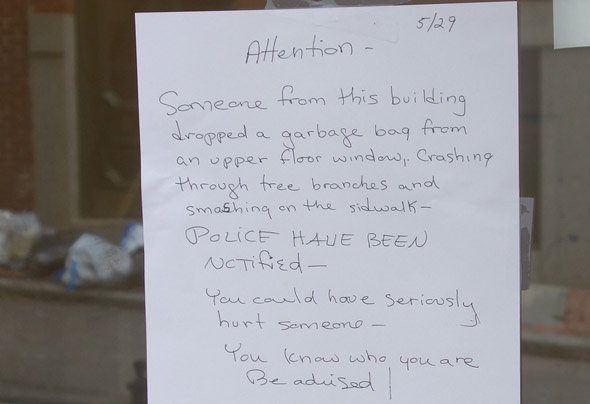 5/29
Attention -
Someone from this building
dropped a garbage bag from
an upper floor window, Crashing
through tree branches and
smashing on the sidwalk -
POLICE HAVE BEEN
NOTIFIED -
You could have seriously
hurt someone -
You know who you are
Be advised